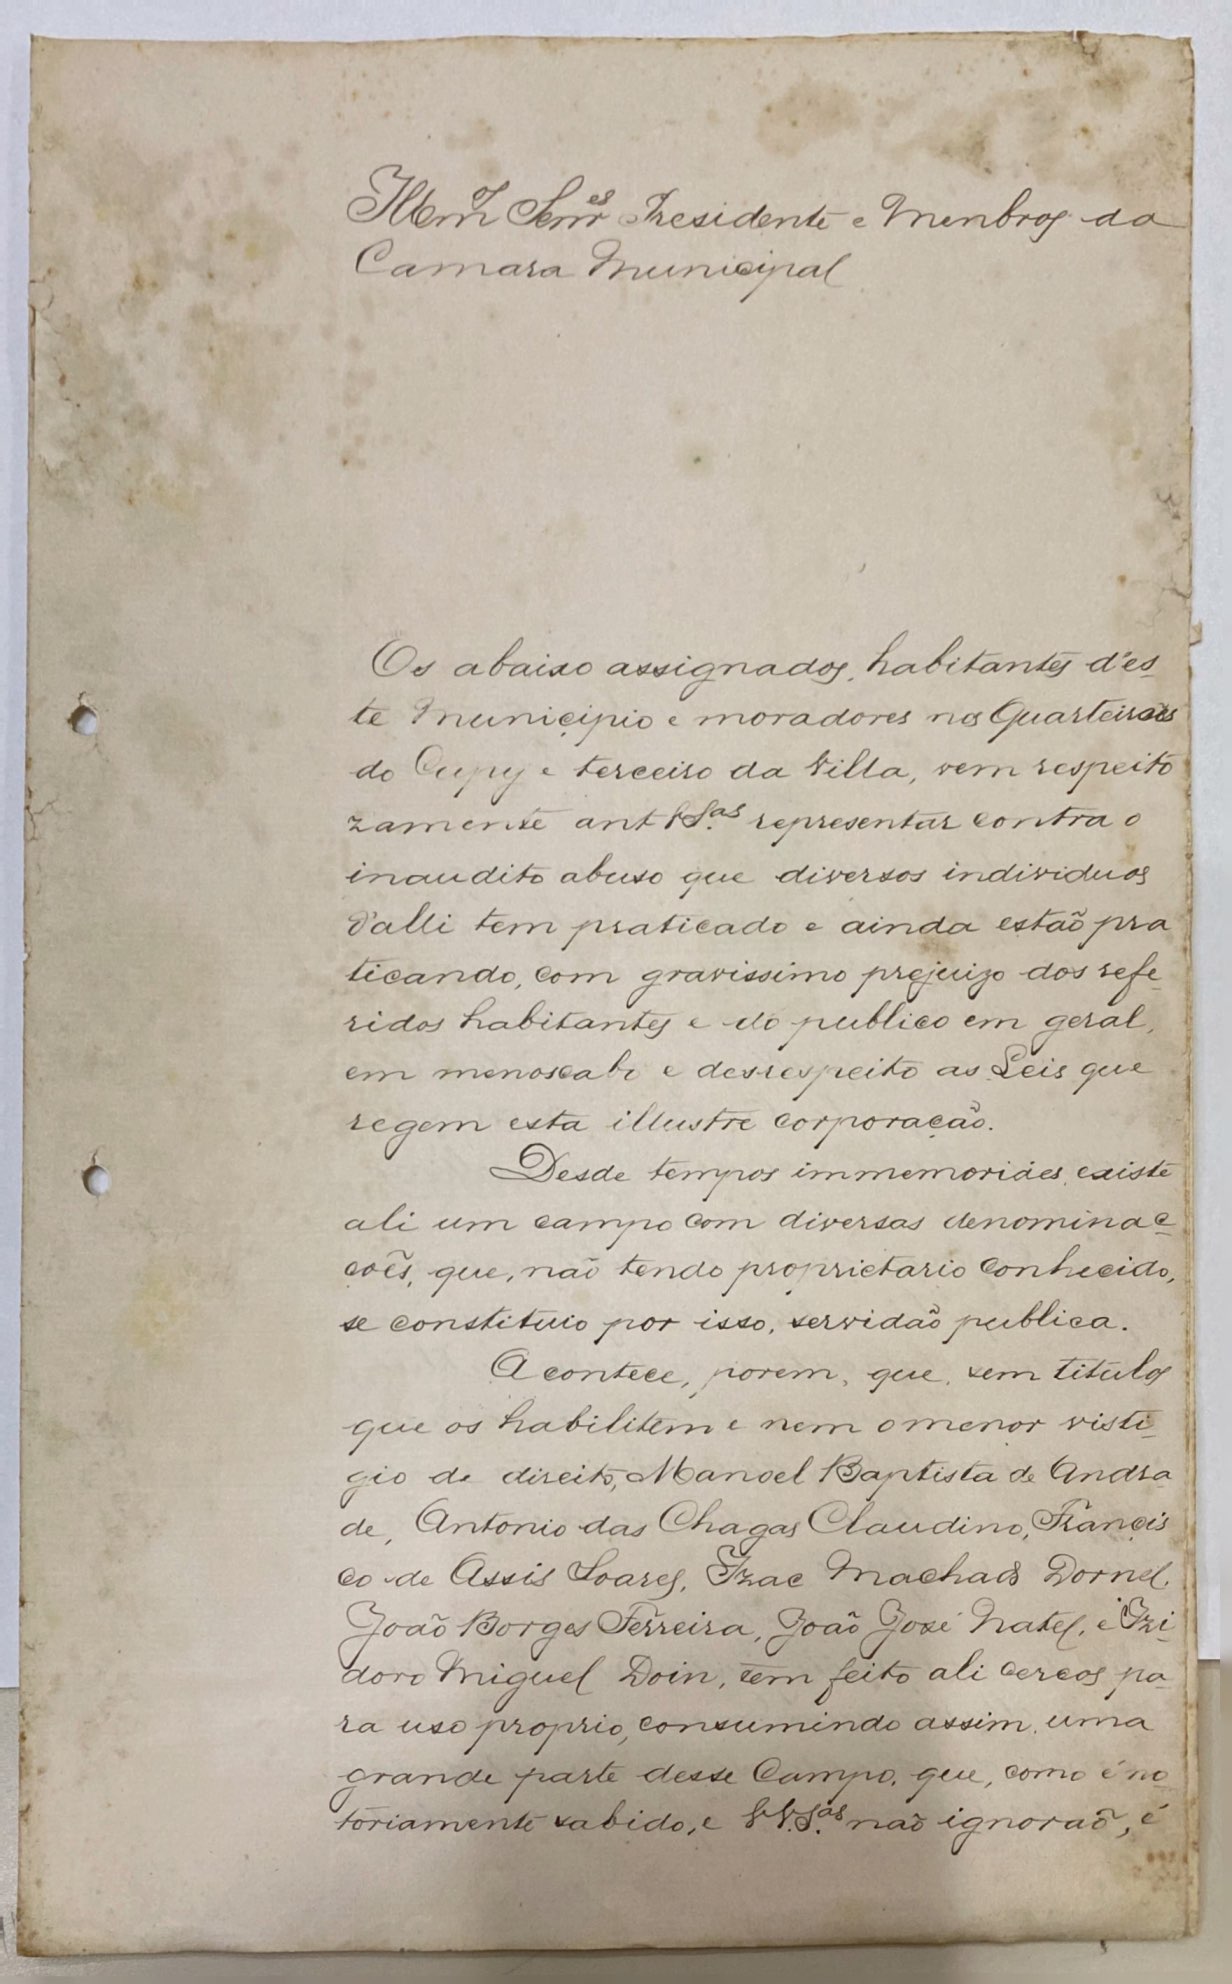 Illm.ºs Senr.es Presidente e Menbros da
Camara Municipal
Os abaixo assignados, habitantes d'es-
te Municipio e moradores nos Quarteirões
do Cupy e terceiro da Villa, vem respeito
zamente ant VS.as representar contra o
inaudito abuso que diversos individuos
d'alli tem praticado e ainda estaõ pra
ticando, com gravissimo prejuizo dos refe-
ridos habitantes e do publico em geral,
em menoscabo e desrespeito as Leis que
regem esta illustre corporaçaõ.
Desde tempos immemoriáes, existe
ali um campo com diversas denominac-
çoẽs, que, naõ tendo proprietario conhecido,
se constituio por isso, servidaõ publica.
Acontece, porem, que, sem titulos
que os habilitem e nem o menor visti-
gio de direito, Manoel Baptista de Andra-
de, Antonio das Chagas Claudino, Francis
co de Assis Soares, Izac Machado Dornel,
João Borges Ferreira, João José Natel, e Izi-
doro Miguel Doin, tem feito ali cercos pa-
ra uso proprio, consumindo assim, uma
grande parte desse Campo, que, como é no-
toriamente sabido, e VV.S.as naõ ignoraõ, é